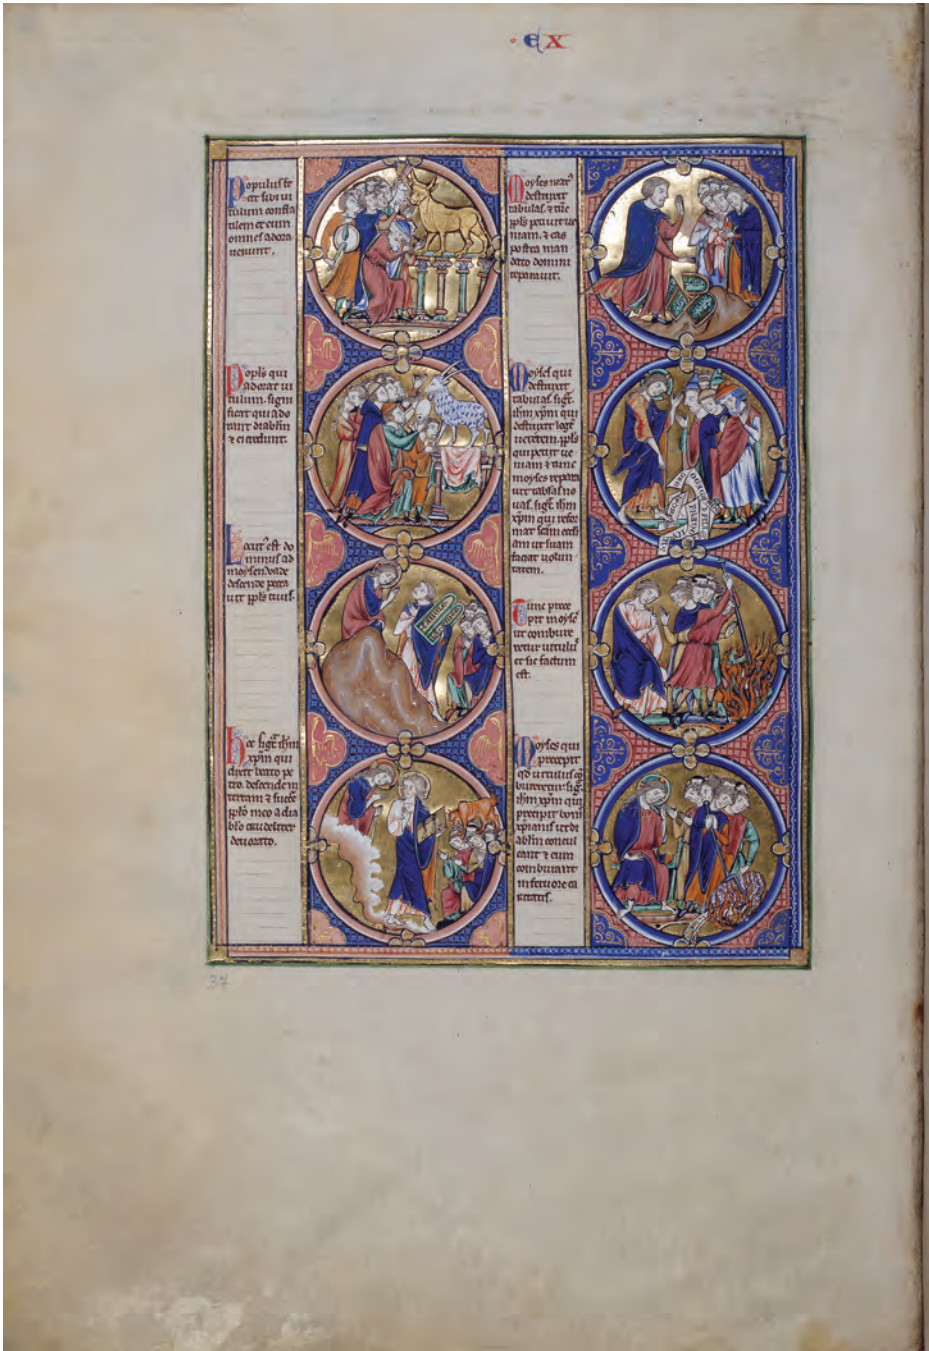 EX
Populus fe
cit sibi vi
tulum confla
tilem et eum
omnes adora
verunt.
Popls qui
adorat vi
tulum signi
ficat qui ado
rant diablm
et ei credunt.
Locut est do
minus ad
moysen
descende pecca
vit ppls tuus.
Hoc sigt ihm
xpm qui
dixit beato pe
tro descende in
terram
pplo meo a dia
blo crudeliter
devorato.
Moyses
destruxit
tabulas. et tunc
ppls petivit ve
niam. et eas
postea man
dato domini
reparavit.
Moyses qui
destruxit
tabulas. sigt
ihm xpm qui
destruxit lege
veterem. ppls
qui petit ve
niam et tunc
moyses repara
vit tablas no
vas. sigt ihm
xpm qui refor
mat scam eccli
am ut suam
faciat volun
tatem.
Tunc prece
pit moyses
ut combure
retur vitulus
et sic factum
est.
Moyses qui
precepit
qd vitulus com
bureretur. sigt
ihm xpm qui
precipit bonis
xpianis ut di
ablm concul
cent et eum
comburant
in fervore ca
ritatis.
37